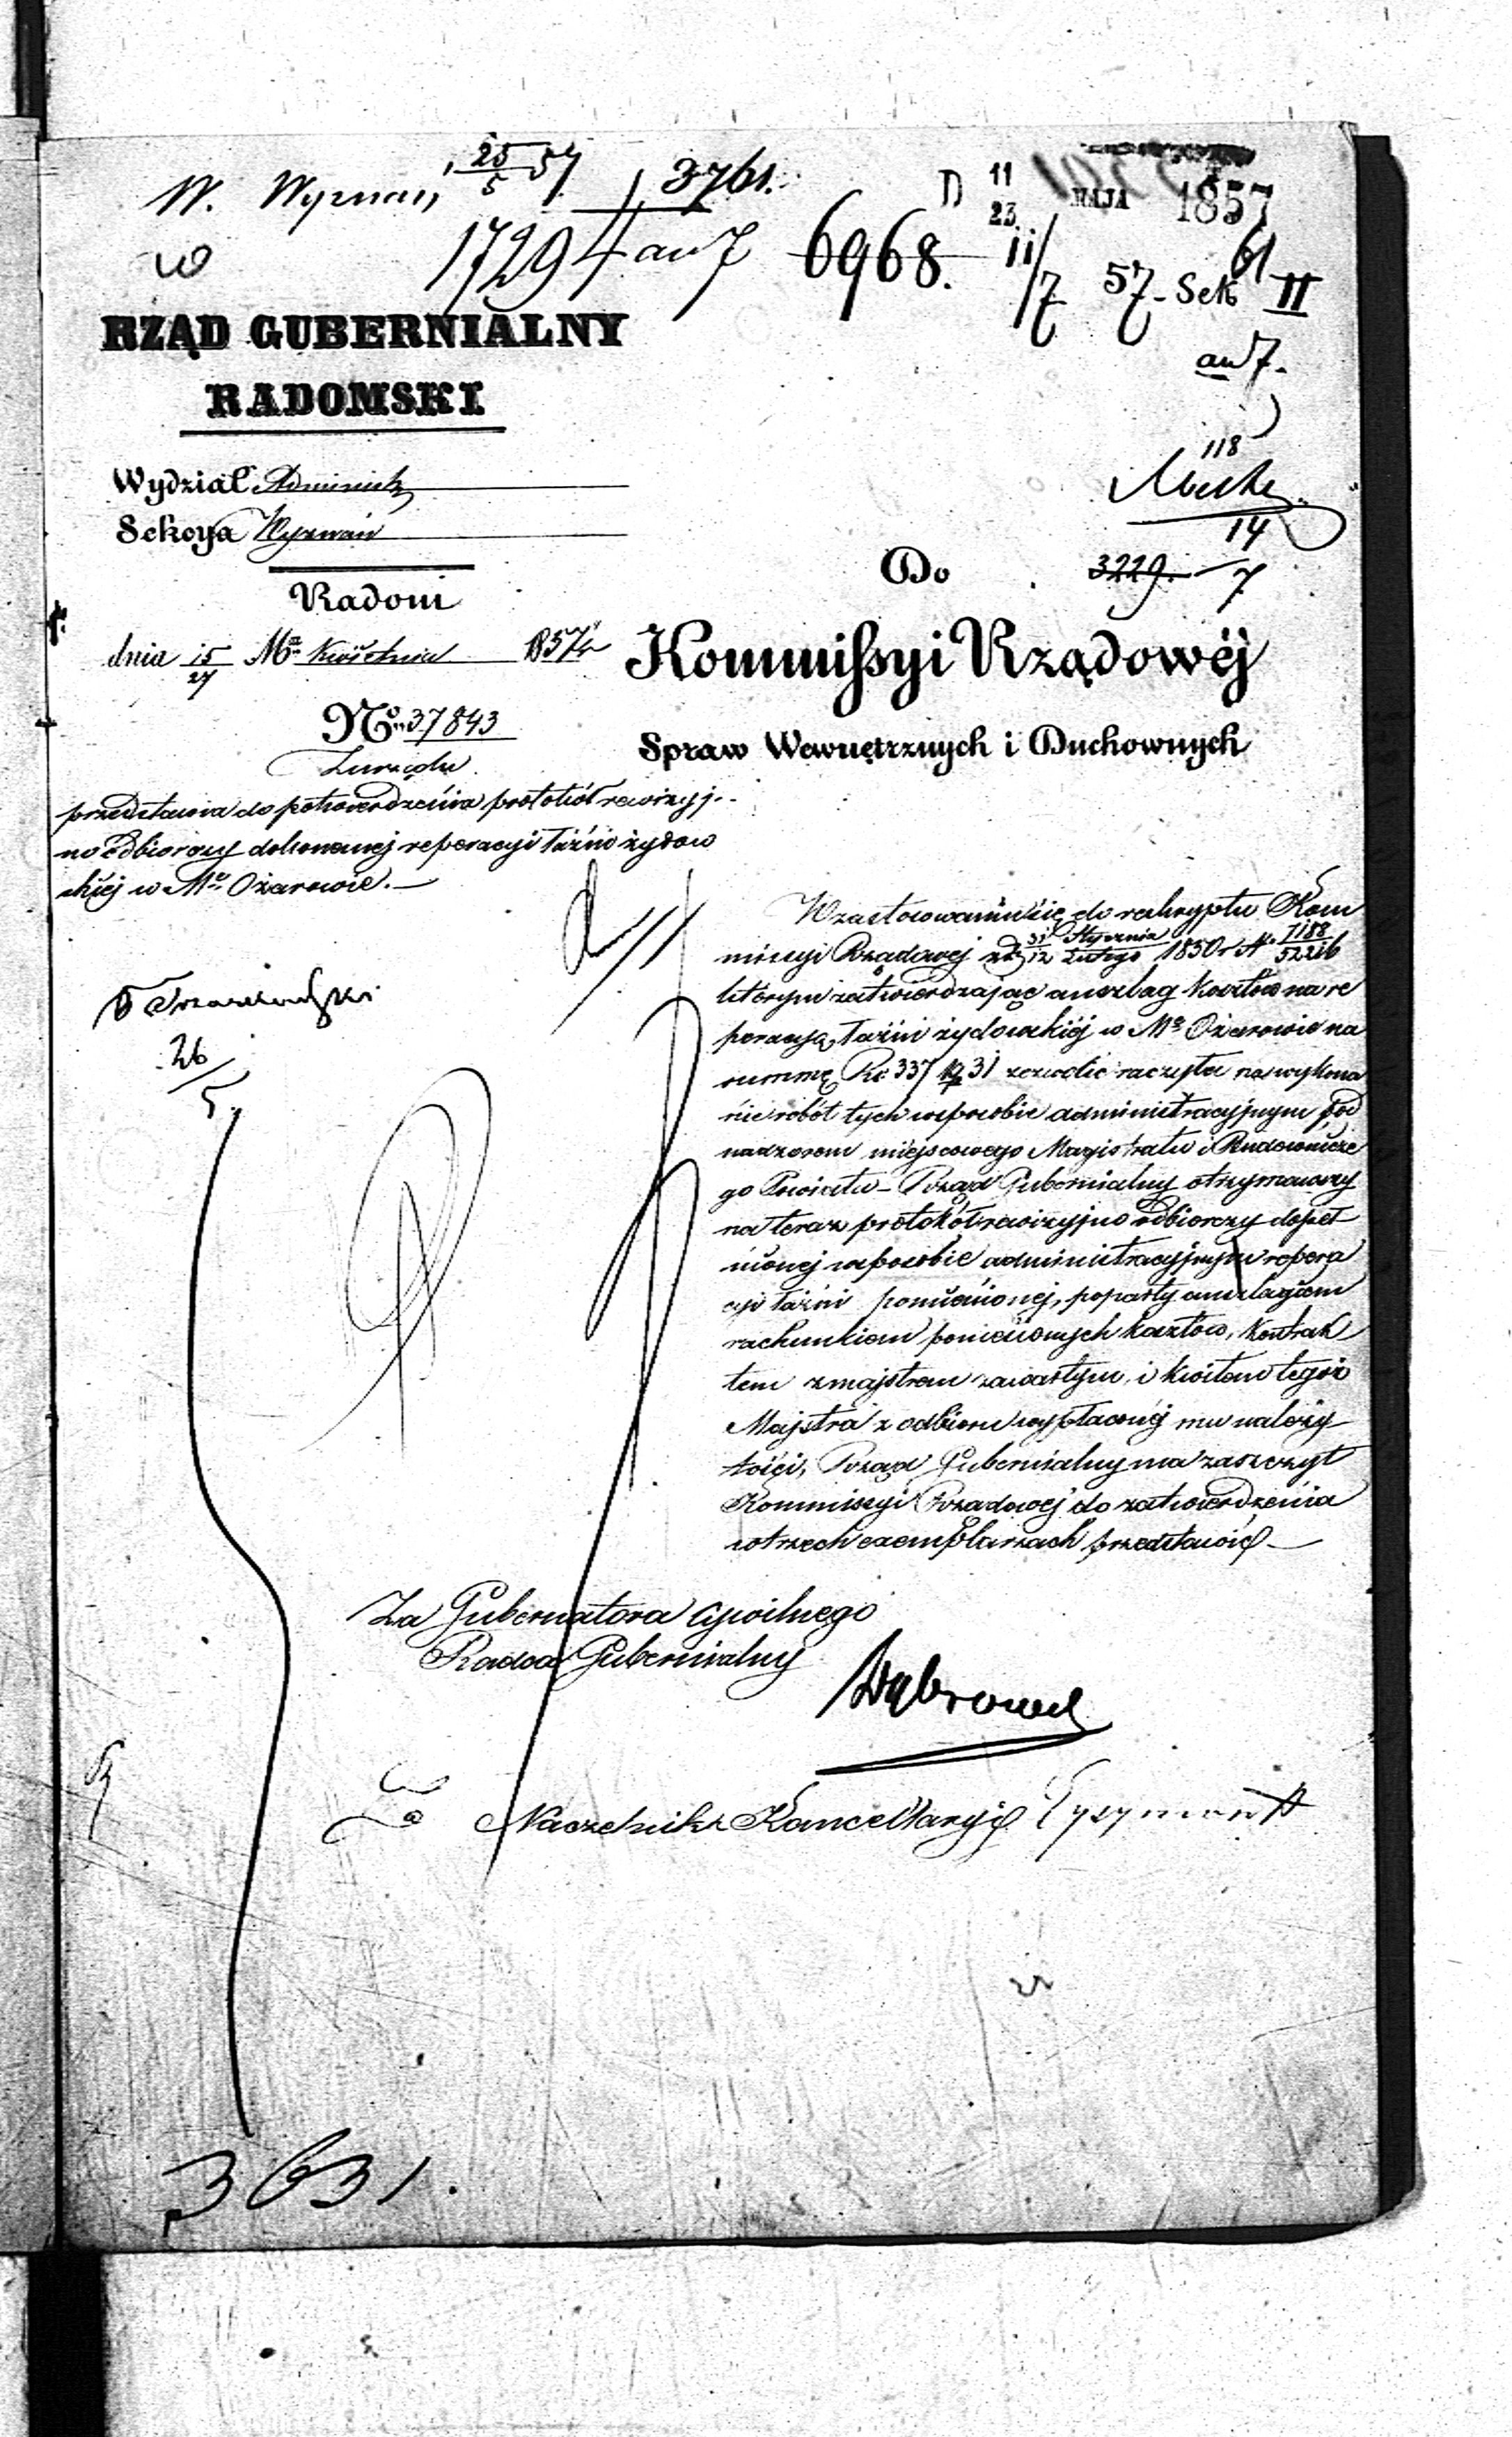 W. Wyznań 25/5 57 3761.
D 11/23 MAJA 1857
17294 6968. 11/7 57 - Sek II
RZĄD GUBERNIALNY
RADOMSKI
118
Wydział Administr
Sekcya Wyznań
14/7
Radom
Do 3229.
dnia 15/27 Ma Kwietnia 1857 r
Kommissyi Rządowéj
No 37843
Spraw Wewnętrznych i Duchownych
Z urzędu
przedstawia do potwierdzenia protokół rewizyj-
no odbiorczy dokonanej reperacyi łaźni żydow
skiej w Me Ożarowie. —
W zastosowaniu się do reskryptu Kom
missyi Rządowej z d. 31 Stycznia/12 Lutego 1850 r No 7188/52216
którym zatwierdzając anszlag kosztów na re
peracyą łaźni żydowskiéj w Me Ożarowie na
summę Rs 337 k 31 zezwolić raczyła na wykona
nie robót tych w sposobie administracyjnym pod
nadzorem miejscowego Magistratu i Budownicze
go Powiatu – Rząd Gubernialny otrzymawszy
na teraz protokół rewizyjno odbiorczy dopeł
nionej w sposobie administracyjnym repera
cyi łaźni pomienionej, poparty anszlagiem
rachunkiem poniesionych kosztów, kontrak
tem z majstrem zawartym, i kwitem tegoż
Majstra z odbioru wypłaconej mu należy
tości, Rząd Gubernialny ma zaszczyt
Kommissyi Rządowej do zatwierdzenia
w trzech exemplarzach przedstawić —
26/5.
Za Gubernatora Cywilnego
Radca Gubernialny
Naczelnik Kancellaryi
3631.